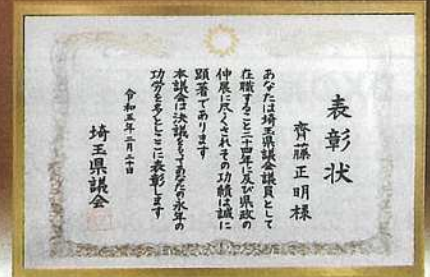 表彰状
齊藤正明様
あなたは埼玉県議会議員として
在職すること二十四年に及び県政の
伸展に尽くされその功績は誠に
顕著であります
本議会は決議をもてあなたの永年の
功労を多としここに表彰します
令和五年二月二十日
埼玉県議会